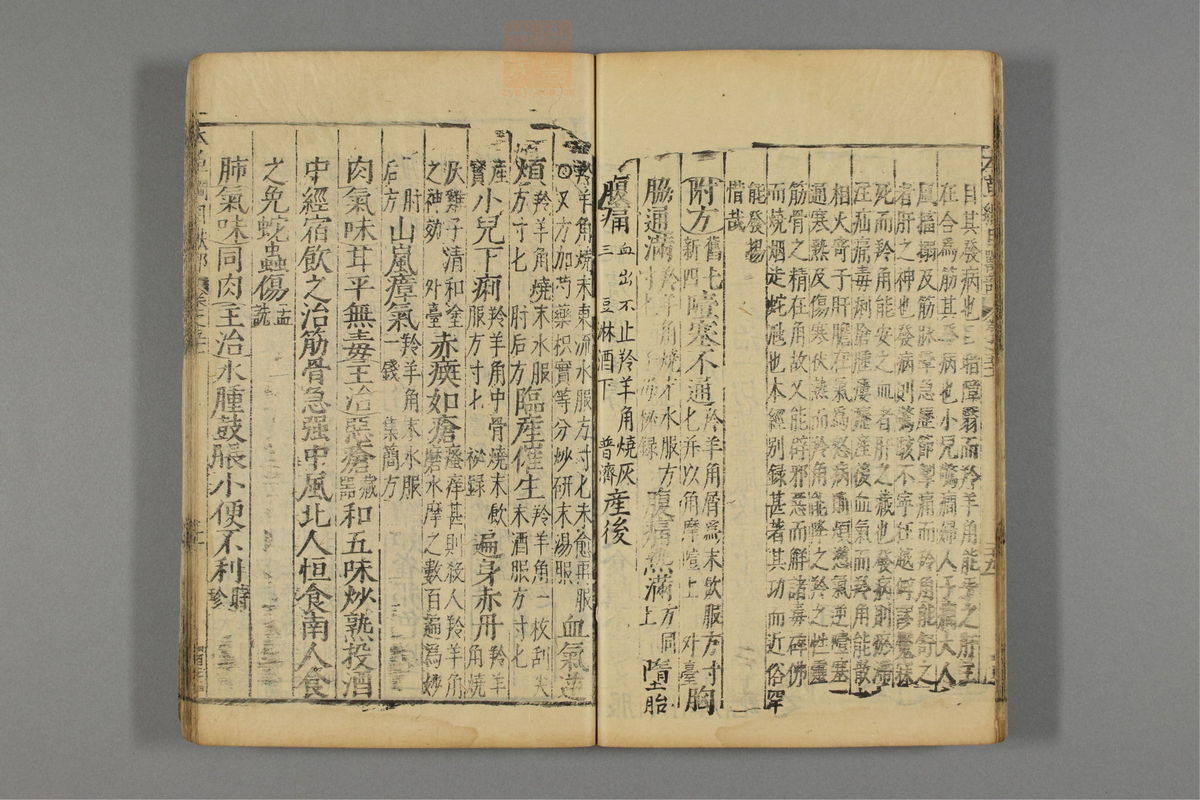 目其發病也目暗障翳而羚羊角能平之肝主
在合爲筋其發病也小兒驚癇婦人子癇大人
風搐搦及筋脉攣急歷節掣痛而羚角能舒之
者肝之神也發病則驚駭不寧狂越僻謬魘寐
死而羚角能安之血者肝之藏也發病則瘀滯
注疝痛毒痢瘡腫瘻癧產後血氣而羚角能散
相火寄于肝膽在氣爲怒病則煩懣氣逆噎塞
通寒熱及傷寒伏熱而羚角能降之羚之性靈
筋骨之精在角故又能辟邪惡而解諸毒碎佛
而燒烟走蛇虺也本經别録甚著其功而近俗罕
能發揚
惜哉
附方舊七新四噎塞不通羚羊角屑爲末飲服方寸匕并以角摩噎上 外臺胸
脇通滿羚羊角燒末水服方寸匕 秘録腹痛熱滿方同上墮胎
腹痛血出不止羚羊角燒灰三 豆淋酒下 普濟產後
羚羊角燒末東流水服方寸匕未愈再服
○又方加芍藥枳實等分炒研末湯服血氣逆
煩羚羊角燒末水服方寸匕 肘后方臨産催生羚羊角一枚刮尖末酒服方寸匕
產寶小兒下痢羚羊角中骨燒末飲服方寸匕 秘録遍身赤丹羚羊角燒
灰雞子清和塗之神効 外臺赤癍如瘡瘙痒甚則殺人羚羊角磨水摩之數百遍爲妙
肘后方山嵐瘴氣羚羊角末水服一錢 集簡方
肉氣味甘平無毒主治惡瘡藏器和五味炒熟投酒
中經宿飲之治筋骨急强中風北人恒食南人食
之免蛇蟲傷孟詵
肺氣味同肉主治水腫鼓脹小便不利時珍